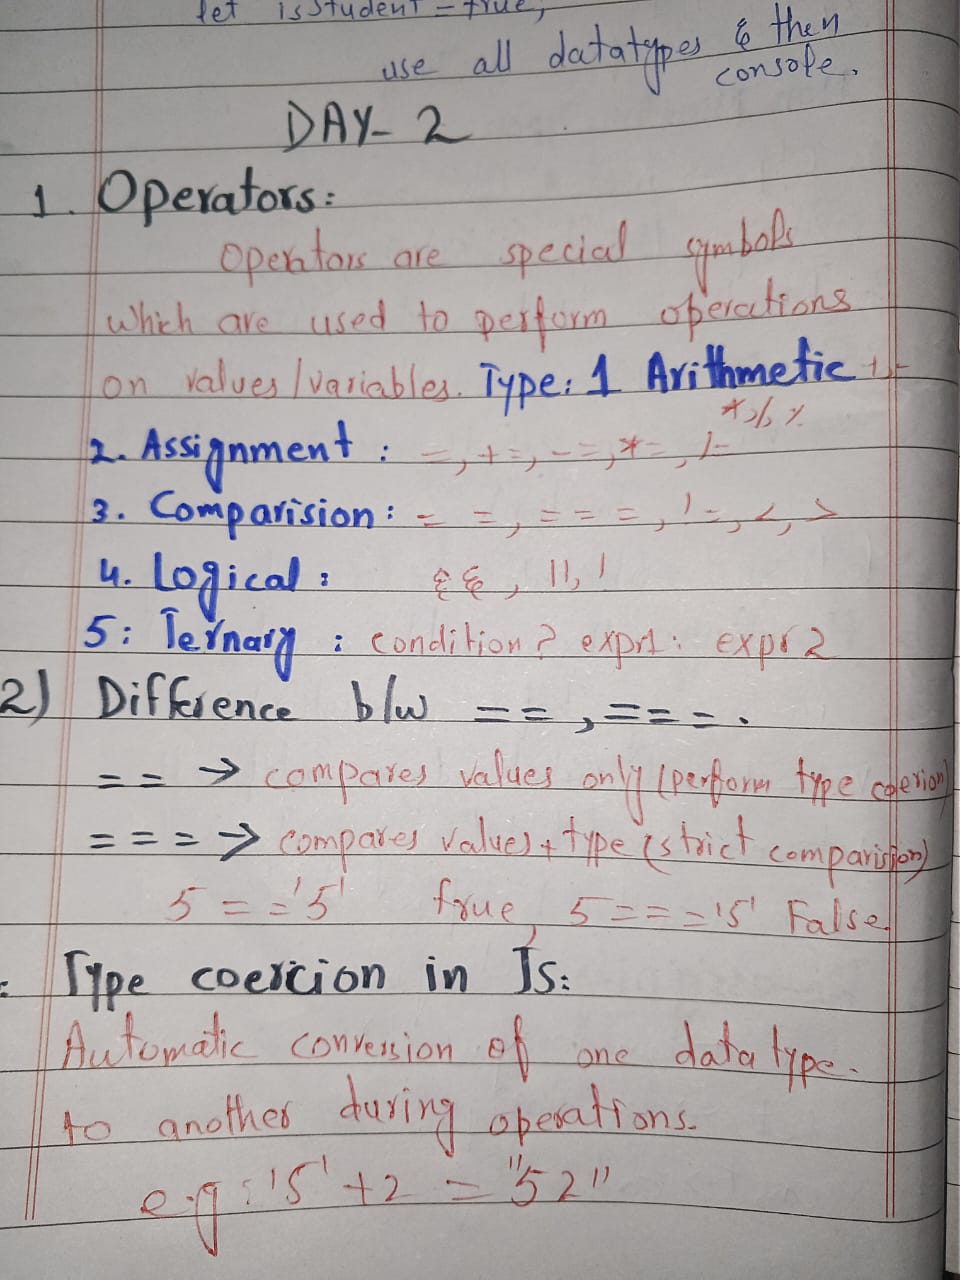 let isStudent = true,
use all datatypes & then
console.
DAY-2
1. Operators:
Operators are special symbols
which are used to perform operations
on values/variables. Type: 1 Arithmetic +,-
*, /, %
2. Assignment : =, +=, -=, *=, /=
3. Comparision : ==, ===, !=, <, >
4. Logical : &&, ||, !
5: Ternary : condition ? expr1 : expr2
2) Difference b/w ==, ===.
== → compares values only (perform type coerion)
=== → compares values + type (strict comparision)
5 == '5' true, 5 === '5' False.
Type coercion in Js:
Automatic conversion of one data type.
to another during operations.
e.g : '5' + 2 = "52"